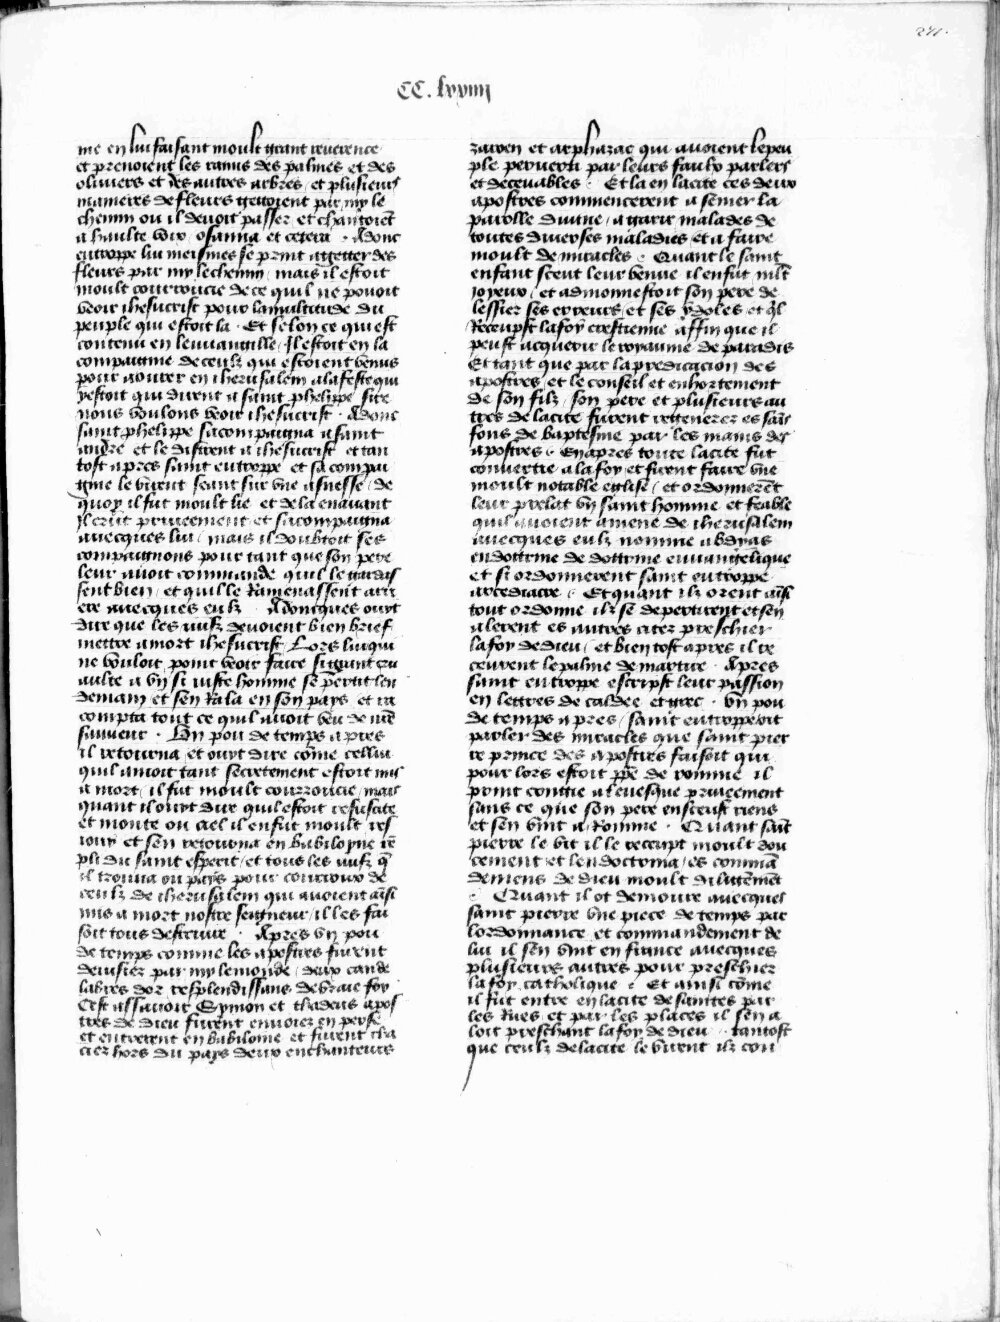 CC. lxxiiij
me en lui faisant moult grant reuerence
et prenoient les rains des palmes et des
oliuiers et des autres arbres / et plusieurs
manieres de fleurs gettoient par my le
chemin ou il deuoit passer et chantoiẽt
a haulte voix / osanna et cetera . Adonc
eutrope lui meismes se print a getter des
fleurs par my le chemin / mais il estoit
moult courroucie de ce quil ne pouoit
veoir ihesucrist pour la multitude du
peuple qui estoit la . Et selon ce qui est
contenu en leuuangille / Il estoit en la
compaignie de ceulz qui estoient venus
pour aourer en iherusalem a la feste qui
y estoit qui dirent a saint phelippe sire
nous voulons veoir ihesucrist . Adonc
saint phelippe sacompaigna a saint
andre et le disrent a ihesucrist et tan
tost apres saint eutroppe et sa compai
gnie le virent seant sur vne asnesse / de
quoy il fut moult lie et de la en auant
il crut priueement et sacompaigna
auecques lui / mais il doubtoit ses
compaignons pour tant que son pere
leur auoit commande quil le gardas
sent bien / et quil le Ramenassent arri
ere auecques eulz . Adoncques ouyt
dire que les iuifz deuoient bien brief
mettre a mort ihesucrist / Lors lui qui
ne vouloit point veoir faire si grant cru
aulte a vn si iuste homme se pertit len
demain et sen Rala en son pays / et ra
compta tout ce quil auoit veu de nr̃e
sauueur . Vn pou de temps apres
il retourna et ouyt dire cõme cellui
quil amoit tant secretement estoit mis
a mort / il fut moult courroucie / mais
quant il ouyt dire quil estoit resuscite
et monte ou ciel il en fut moult res
iouy et sen retourna en babiloyne rẽ
pli du saint esperit / et tous les iuifz q̃
il trouua ou pays pour courroux de
ceulz de iherusalem qui auoient aĩsi
mis a mort nostre seigneur / il les fai
soit tous destruire . Apres vn pou
de temps comme les apostres furent
deuisiez par my le monde / deux cande
labres dor resplendissans de vraie foy
Cest assauoir Symon et thadeus apos
tres de dieu furent enuoiez en perse
et entrerent en babiloine et furent cha
ciez hors du pays deux enchanteurs
zaroen et arphazac qui auoient le peu
ple peruerti par leurs faulx parlers
et deceuables . Et la en la cite ces deux
apostres commencerent a semer la
parolle diuine / a garir malades de
toutes diuerses maladies et a faire
moult de miracles . Quant le saint
enfant sceut leur venue il en fut mlt̃
ioyeux / et admonnestoit son pere de
lessier ses erreurs / et ses ydoles et q̃l
Receupst la foy crestienne affin que il
peust acquerir le royaume de paradis
Et tant que par la predicacion des
apostres / et le conseil et enhortement
de son filz / son pere et plusieurs au
tres de la cite furent regenerez es saĩs
fons de baptesme par les mains des
apostres . En apres toute la cite fut
conuertie a la foy / et firent faire vne
moult notable eglise / et ordonnerẽt
leur prelat vn saint homme et feable
quil auoient amene de iherusalem
auecques eulz nomme abdyas
en dottrine de dottrine euuangelique
et si ordonnerent saint eutroppe
arcediacre . Et quant ilz orent aĩsi
tout ordonne ilz se departirent et sen
alerent es autres citez preschier
la foy de dieu / et bien tost apres il re
ceurent le palme de martire . Apres
saint eutroppe escripst leur passion
en lettres de caldee et grec . vn pou
de temps apres / saint eutroppe oit
parler des miracles que saint pier
re prince des apostres faisoit qui
pour lors estoit pp̃e de romme il
print congie a leuesque priueement
sans ce que son pere en sceust riens
et sen vint a Romme . Quant saĩt
pierre le vit il le receupt moult dou
cement et lendoctrina / es commã
demens de dieu moult diligẽmẽt
. Quant il ot demoure auecques
saint pierre vne piece de temps par
lordonnance et commandement de
lui il sen vint en france auecques
plusieurs autres pour preschier
la foy catholique . Et ainsi cõme
il fut entre en la cite de saintes par
les Rues et par les places il sen a
loit preschant la foy de dieu . tantost
que ceulz de la cite le virent ilz con